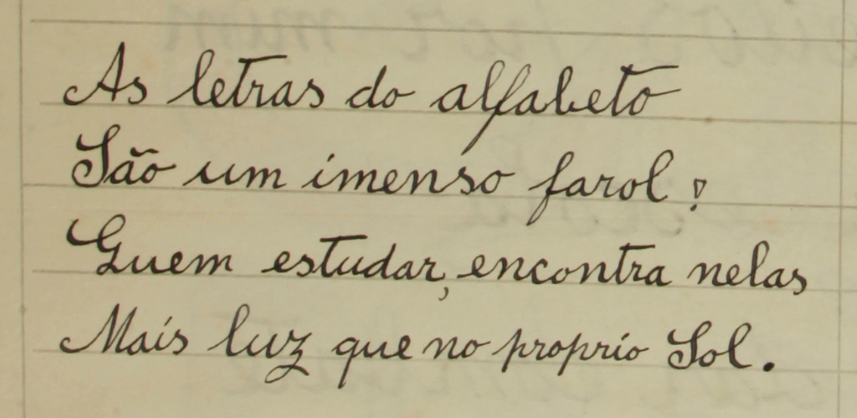 As letras do alfabeto
São um imenso farol!
Quem estudar, encontra nelas
Mais luz que no proprio Sol.